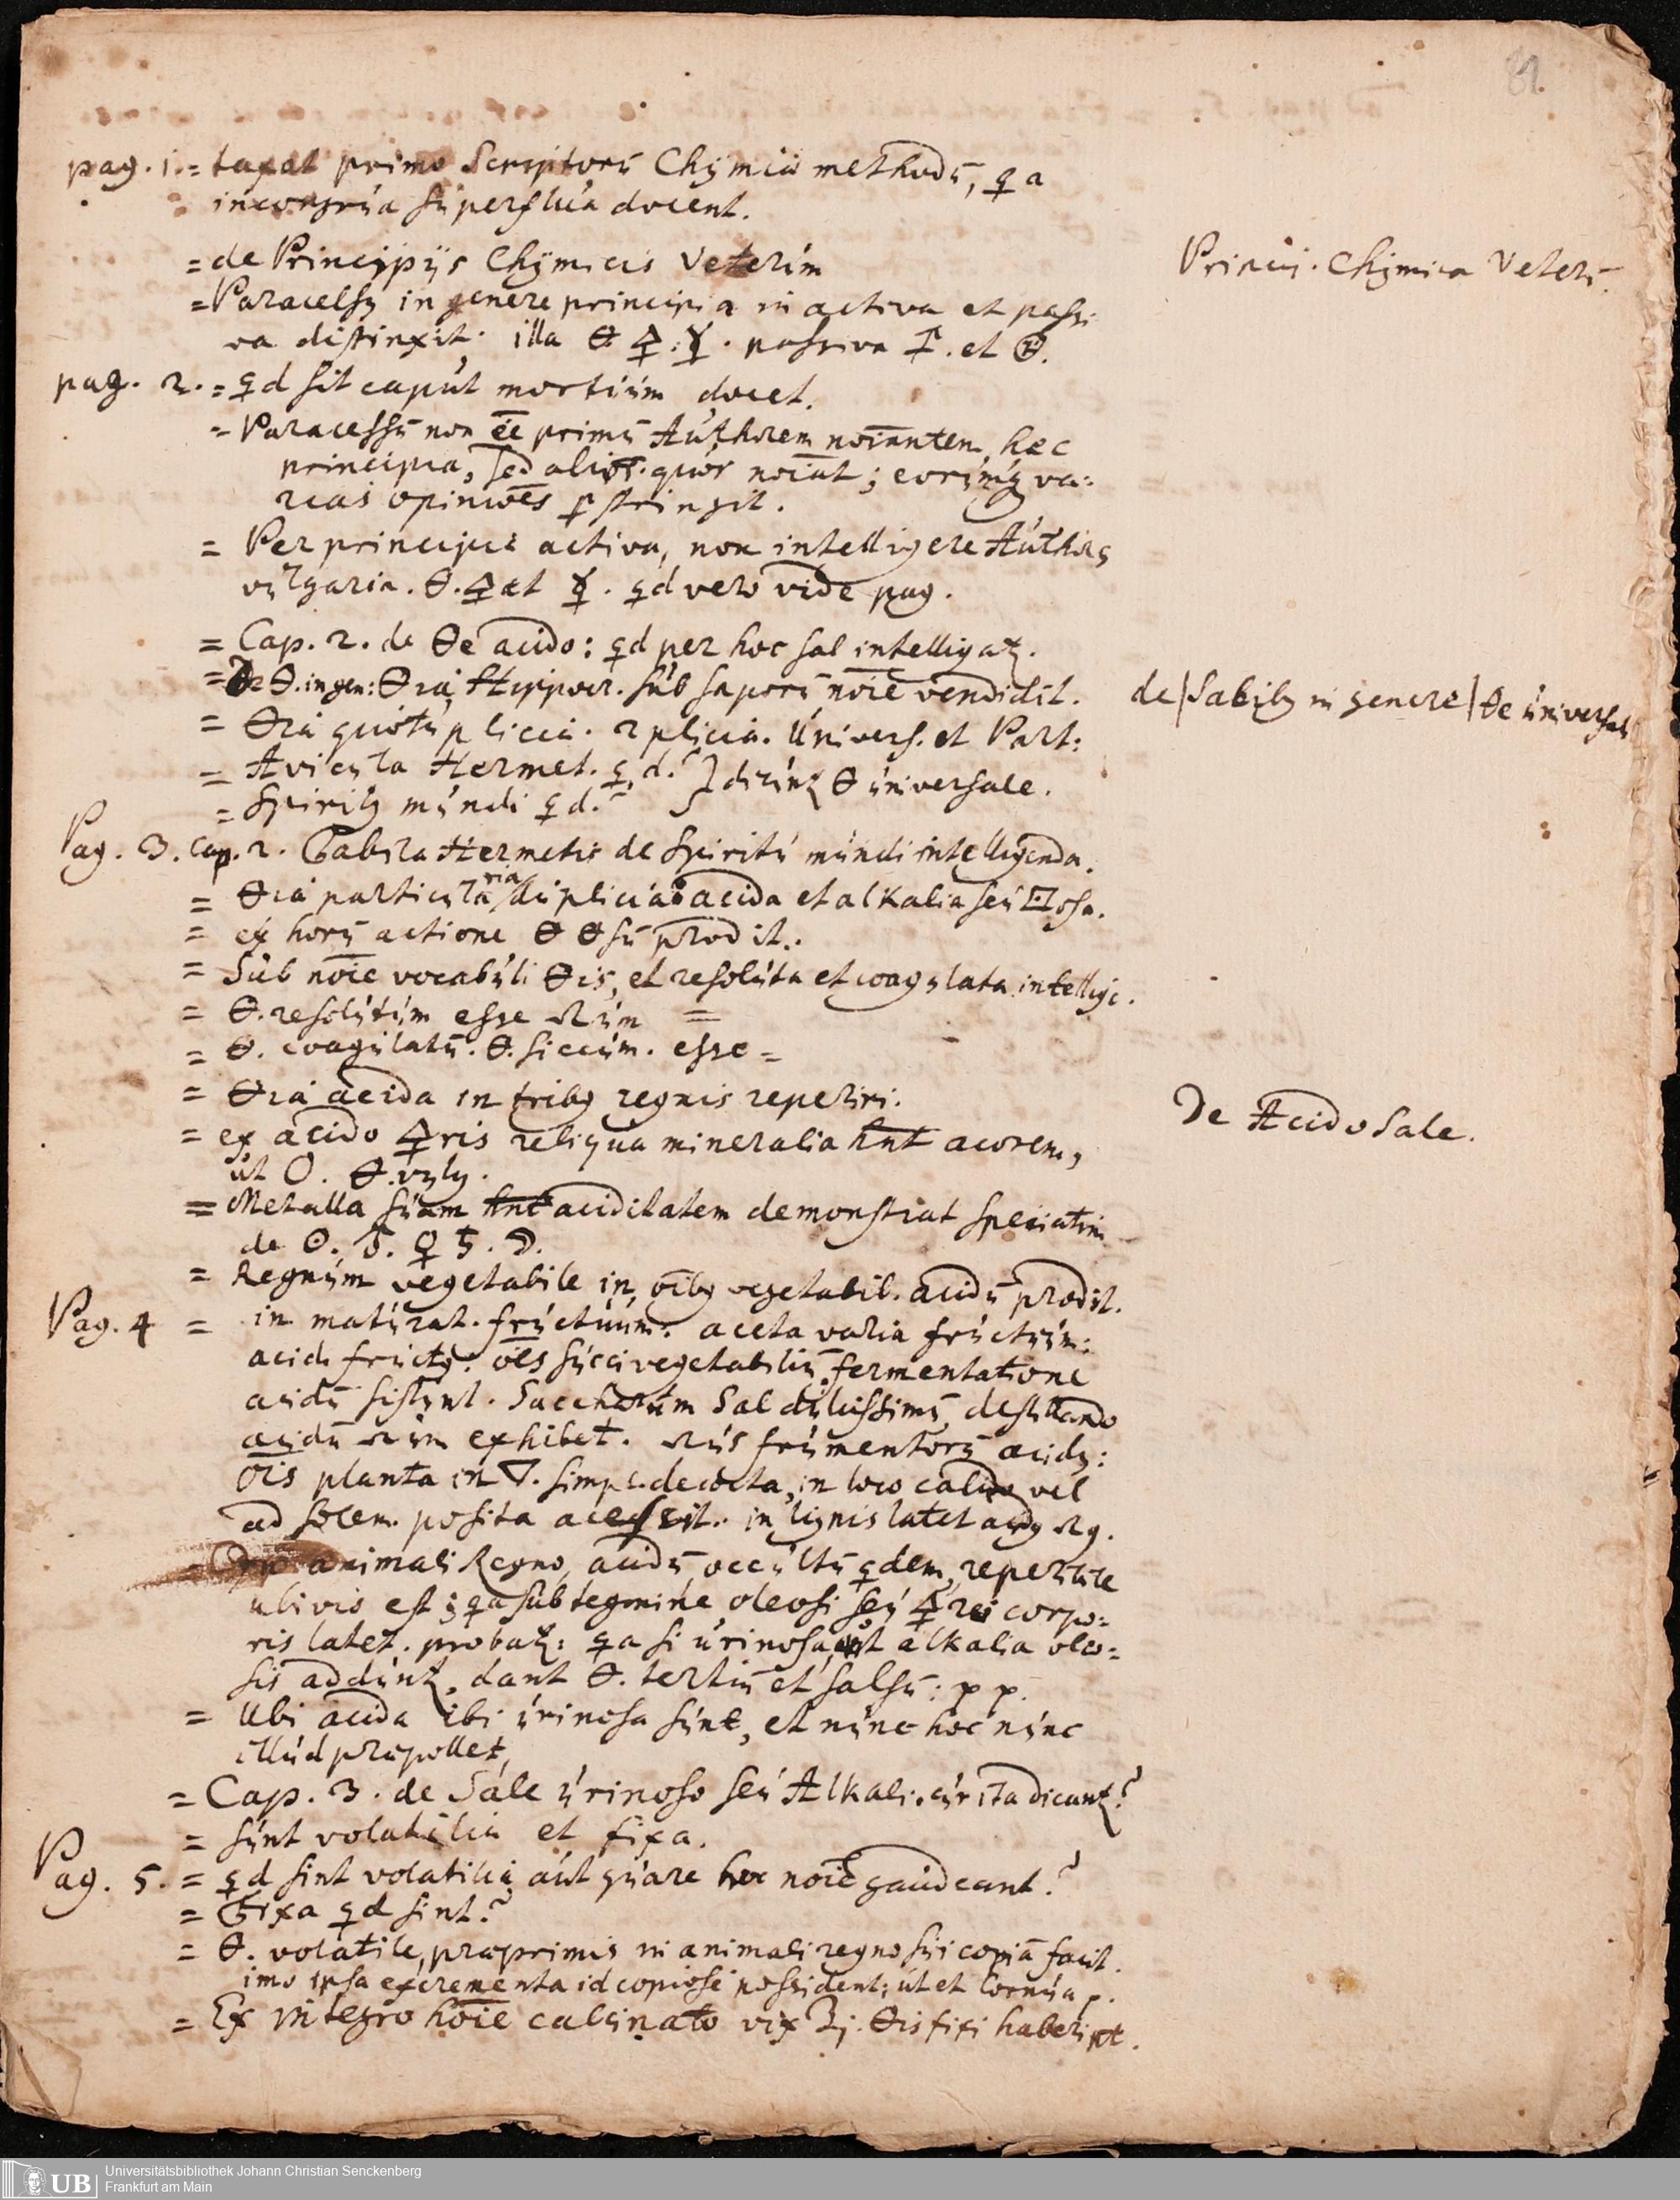 81.
pag. 1. = taxat primo Scriptorū Chymicū methodū, qa
incongrua superflua docent.
= de Principÿs Chymicis Veterum
Princij. Chymica Veterū.
= Paracelsꝰ in genere principia in activa et passi
va distinxit; illa 🜔 🜍. ☿. passiva et
pag. 2. = qd sit caput mortuum docet.
= Paracelsū non eē primū Authorem noīantem, hæc
principia, sed alios quos noīat; eorumq va:
rias opiniōes pstringit.
= Per principia activa, non intelligere Authores
vulgaria. 🜔. 🜍 et ☿. qd vero vide pag.
= Cap. 2. de 🜔e acido: qd per hoc sal intelligatz.
= De 🜔. in gen: 🜔ia, Hippocr. sub saporū noīe vendidit.
de | Salibꝰ in genere | 🜔e universali
= 🜔ia quotuplicia. 2plicia. Univers. et Part:
= Avicula Hermet. q. d.? } dicuntz 🜔 universale.
= Spiritꝰ mundi qd.?
Pag. 3. Cap. 2. Tabula Hermetis de Spiritu mundi intelligenda.
= 🜔ia particularia duplicia: acida et alkalia seu osa.
= ex horū actione 🜔 🜔sū prodit.
= Sub noīe vocabuli 🜔is, et resoluta et coagulata intellige.
= 🜔. resolutum esse um =
= 🜔. coagulatū. 🜔. siccum. esse =
= 🜔ia acida in tribꝰ regnis reperiri.
De Acido Sale.
= ex acido 🜍ris reliqua mineralia hnt acorem,
ut 🜔. vulg.
= Metalla suam hnt aciditatem demonstrat speciatim
de ☉. ♂. ♀ ♄. ☽.
= Regnum vegetabile in oībꝰ vegetabil. acidū prodit.
Pag. 4 = in maturat. fructuum: aceta varia fructuum:
acidi fructꝰ: oēs succi vegetabiliū fermentatione
acidū sistunt. Saccharum Sal dulcissimū, destillando
acidū um exhibet. us frumentorū acidꝰ:
oīs planta in 🜄. simpl. decocta, in loco calido vel
ad solem posita acescit. in lignis latet acidꝰ ꝰ.
animali Regno, acidū occultū qdem, reperire
ubivis est; qa sub tegmine oleosi seu 🜍rei corpo:
ris latet. probatz: qa si urinosa aut alkalia oleo:
sis adduntz, dant 🜔. tertiū et salsū: p p.
= Ubi acida ibi urinosa sunt, et nunc hoc nunc
illud præpollet,
= Cap. 3. de Sale urinoso seu Alkali. cur ita dicantz?
= sunt volatilia et fixa.
Pag. 5. = qd sint volatilia, aut quare hoc noīe gaudeant?
= Fixa qd sint?
= 🜔. volatile, præprimis in animali regno sui copiā facit.
imo ipsa excrementa id copiose possident; ut et Cornua p.
= Ex integro hoīe calcinato vix ʒj. 🜔is fixi haberi pt.
UB Universitätsbibliothek Johann Christian Senckenberg
Frankfurt am Main